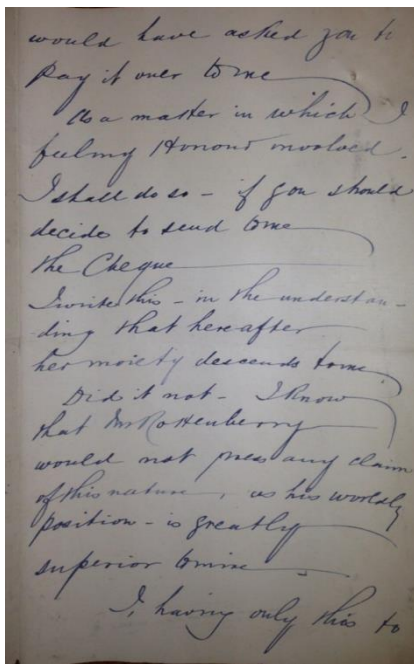 would have asked you to
pay it over to me
As a matter in which I
feel my Honour involved.
I shall do so - if you should
decide to send to me
the Cheque
I write this - in the understan-
ding that hereafter
her moiety descends to me.
Did it not - I know
that Mr Rottenberry
would not press any claim
of this nature, as his worldly
position - is greatly
superior to mine
I, having only this to